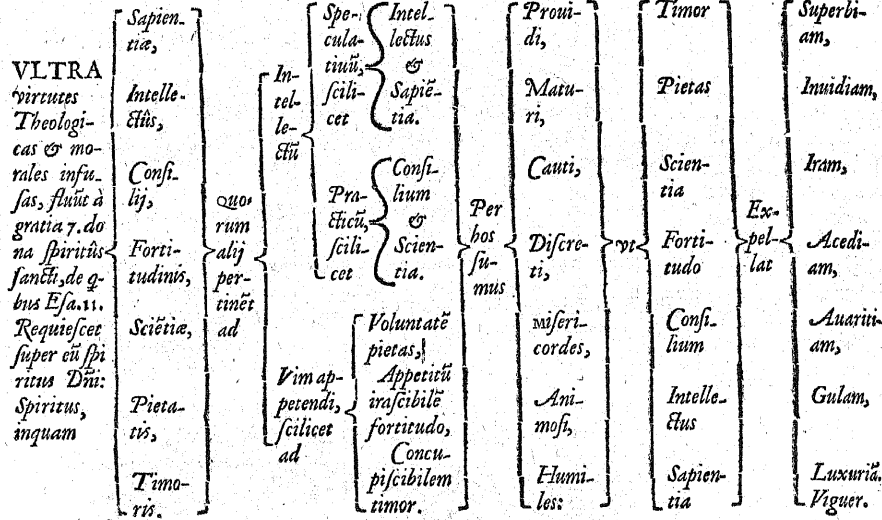 VLTRA
virtutes
Theologi-
cas & mo-
rales infu-
ſas, fluũt à
gratia 7. do
na ſpiritûs
ſancti, de q̃
bus Eſa. 11.
Requieſcet
ſuper eũ ſpi
ritus Dñi:
Spiritus,
inquam
Sapien-
tiæ,
Intelle-
ctûs,
Conſi-
lij,
Forti-
tudinis,
Sciẽtiæ,
Pieta-
tis,
Timo-
ris.
Quo-
rum
alij
per-
tinẽt
ad
In-
tel-
le-
ctũ
Spe-
cula-
tiuũ,
ſcili-
cet
Intel-
lectus
&
Sapiẽ-
tia.
Pra-
cticũ,
ſcili-
cet
Conſi-
lium
&
Scien-
tia.
Vim ap-
petendi,
ſcilicet
ad
Voluntatẽ
pietas,
Appetitũ
iraſcibilẽ
fortitudo,
Concu-
piſcibilem
timor.
Per
hos
ſu-
mus
Proui-
di,
Matu-
ri,
Cauti,
Diſcre-
ti,
miſeri-
cordes,
Ani-
moſi,
Humi-
les:
vt
Timor
Pietas
Scien-
tia
Forti-
tudo
Conſi-
lium
Intelle-
ctus
Sapien-
tia
Ex-
pel-
lat
Superbi-
am,
Inuidiam,
Iram,
Acedi-
am,
Auariti-
am,
Gulam,
Luxuriã.
Viguer.